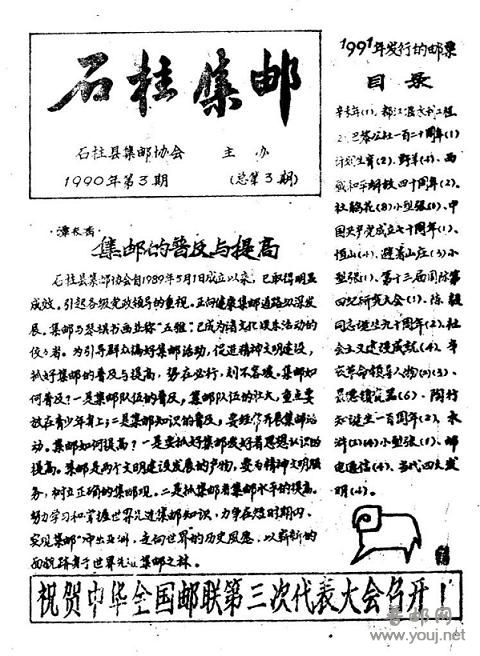 石柱集邮
石柱县集邮协会 主办
1990年第3期 (总第3期)
1991年发行的邮票
目录
辛未年(1)、都江堰水利工程
、巴黎公社一百二十周年(1)
计划生育(2)、野羊(4)、西
藏和平解放四十周年(2)、
杜鹃花(8)小型张(1)、中
国共产党成立七十周年(1)、
恒山(4)、避暑山庄(3)小
型张(1)、第十三届国际第
四纪研究大会(1)、陈毅
同志诞生九十周年(2)、社
会主义建设成就(4)、辛
亥革命领导人物(3)、
景德镇瓷器(6)、陶行
知诞生一百周年(2)、水
浒(4)小型张(1)、邮
电通信(4)、当代四大发
明(4)。
谭长喬
集邮的普及与提高
石柱县集邮协会自1989年5月1日成立以来,已取得明显
成效。引起各级党政领导的重视。正向健康集邮道路纵深发
展。集邮与琴棋书画并称“五雅”,已成为诸文化娱乐活动的
佼佼者。为引导群众搞好集邮活动,促进精神文明建设,
抓好集邮的普及与提高,势在必行,刻不容缓。集邮如
何普及?一是集邮队伍的普及,集邮队伍的壮大,重点要
放在青少年身上;二是集邮知识的普及,要经常开展集邮活
动。集邮如何提高?一是要抓好集邮爱好者思想认识的
提高。集邮是两个文明建设发展的产物,要为精神文明服
务,树立正确的集邮观。二是抓集邮者集邮水平的提高。
努力学习和掌握世界先进集邮知识,力争在短时期内,
实现集邮“冲出亚洲,走向世界的历史夙愿,以崭新的
面貌跻身于世界先进集邮之林。
祝贺中华全国邮联第三次代表大会召开!
善邮网
www.youj.net